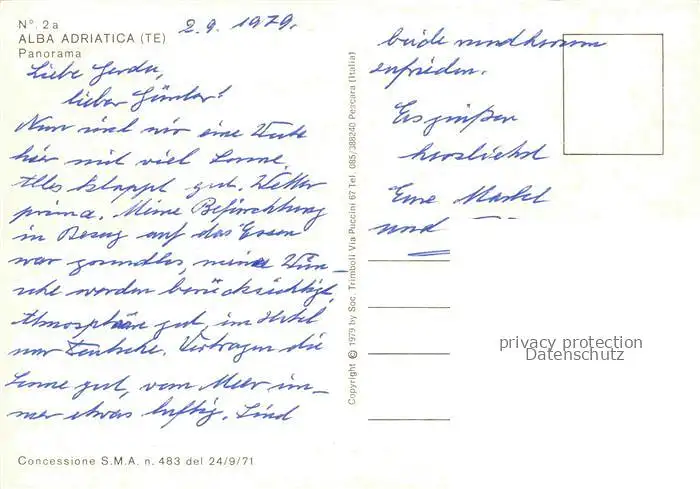 N°. 2a
ALBA ADRIATICA (TE)
Panorama
2.9. 1979.
Liebe Gerda,
lieber Günter!
Nun sind wir eine Woche
hier mit viel Sonne.
Alles klappt gut. Wetter
prima. Meine Befürchtung
in Bezug auf das Essen
war grundlos, meine Wün-
sche werden berücksichtigt,
Atmosphäre gut, im Hotel
nur Deutsche. Vertragen die
Sonne gut, vom Meer im-
mer etwas luftig. Sind
beide rundherum
zufrieden.
Es grüßen
herzlichst
Eure
und
Copyright © 1979 by Soc. Trimboli Via Puccini 67 Tel. 085/388240 Pescara (Italia)
privacy protection
Datenschutz
Concessione S.M.A. n. 483 del 24/9/71